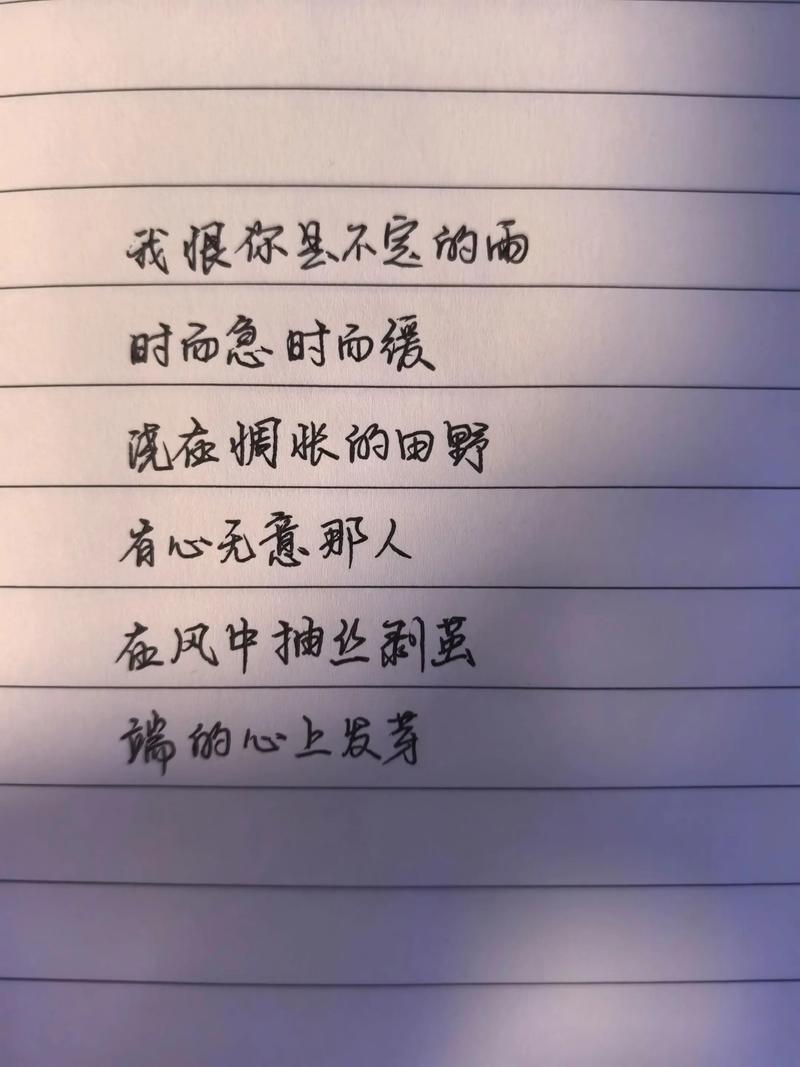 我恨你是不定的雨
时而急时而缓
浇在惆怅的田野
有心无意那人
在风中抽丝剥茧
端的心上发芽